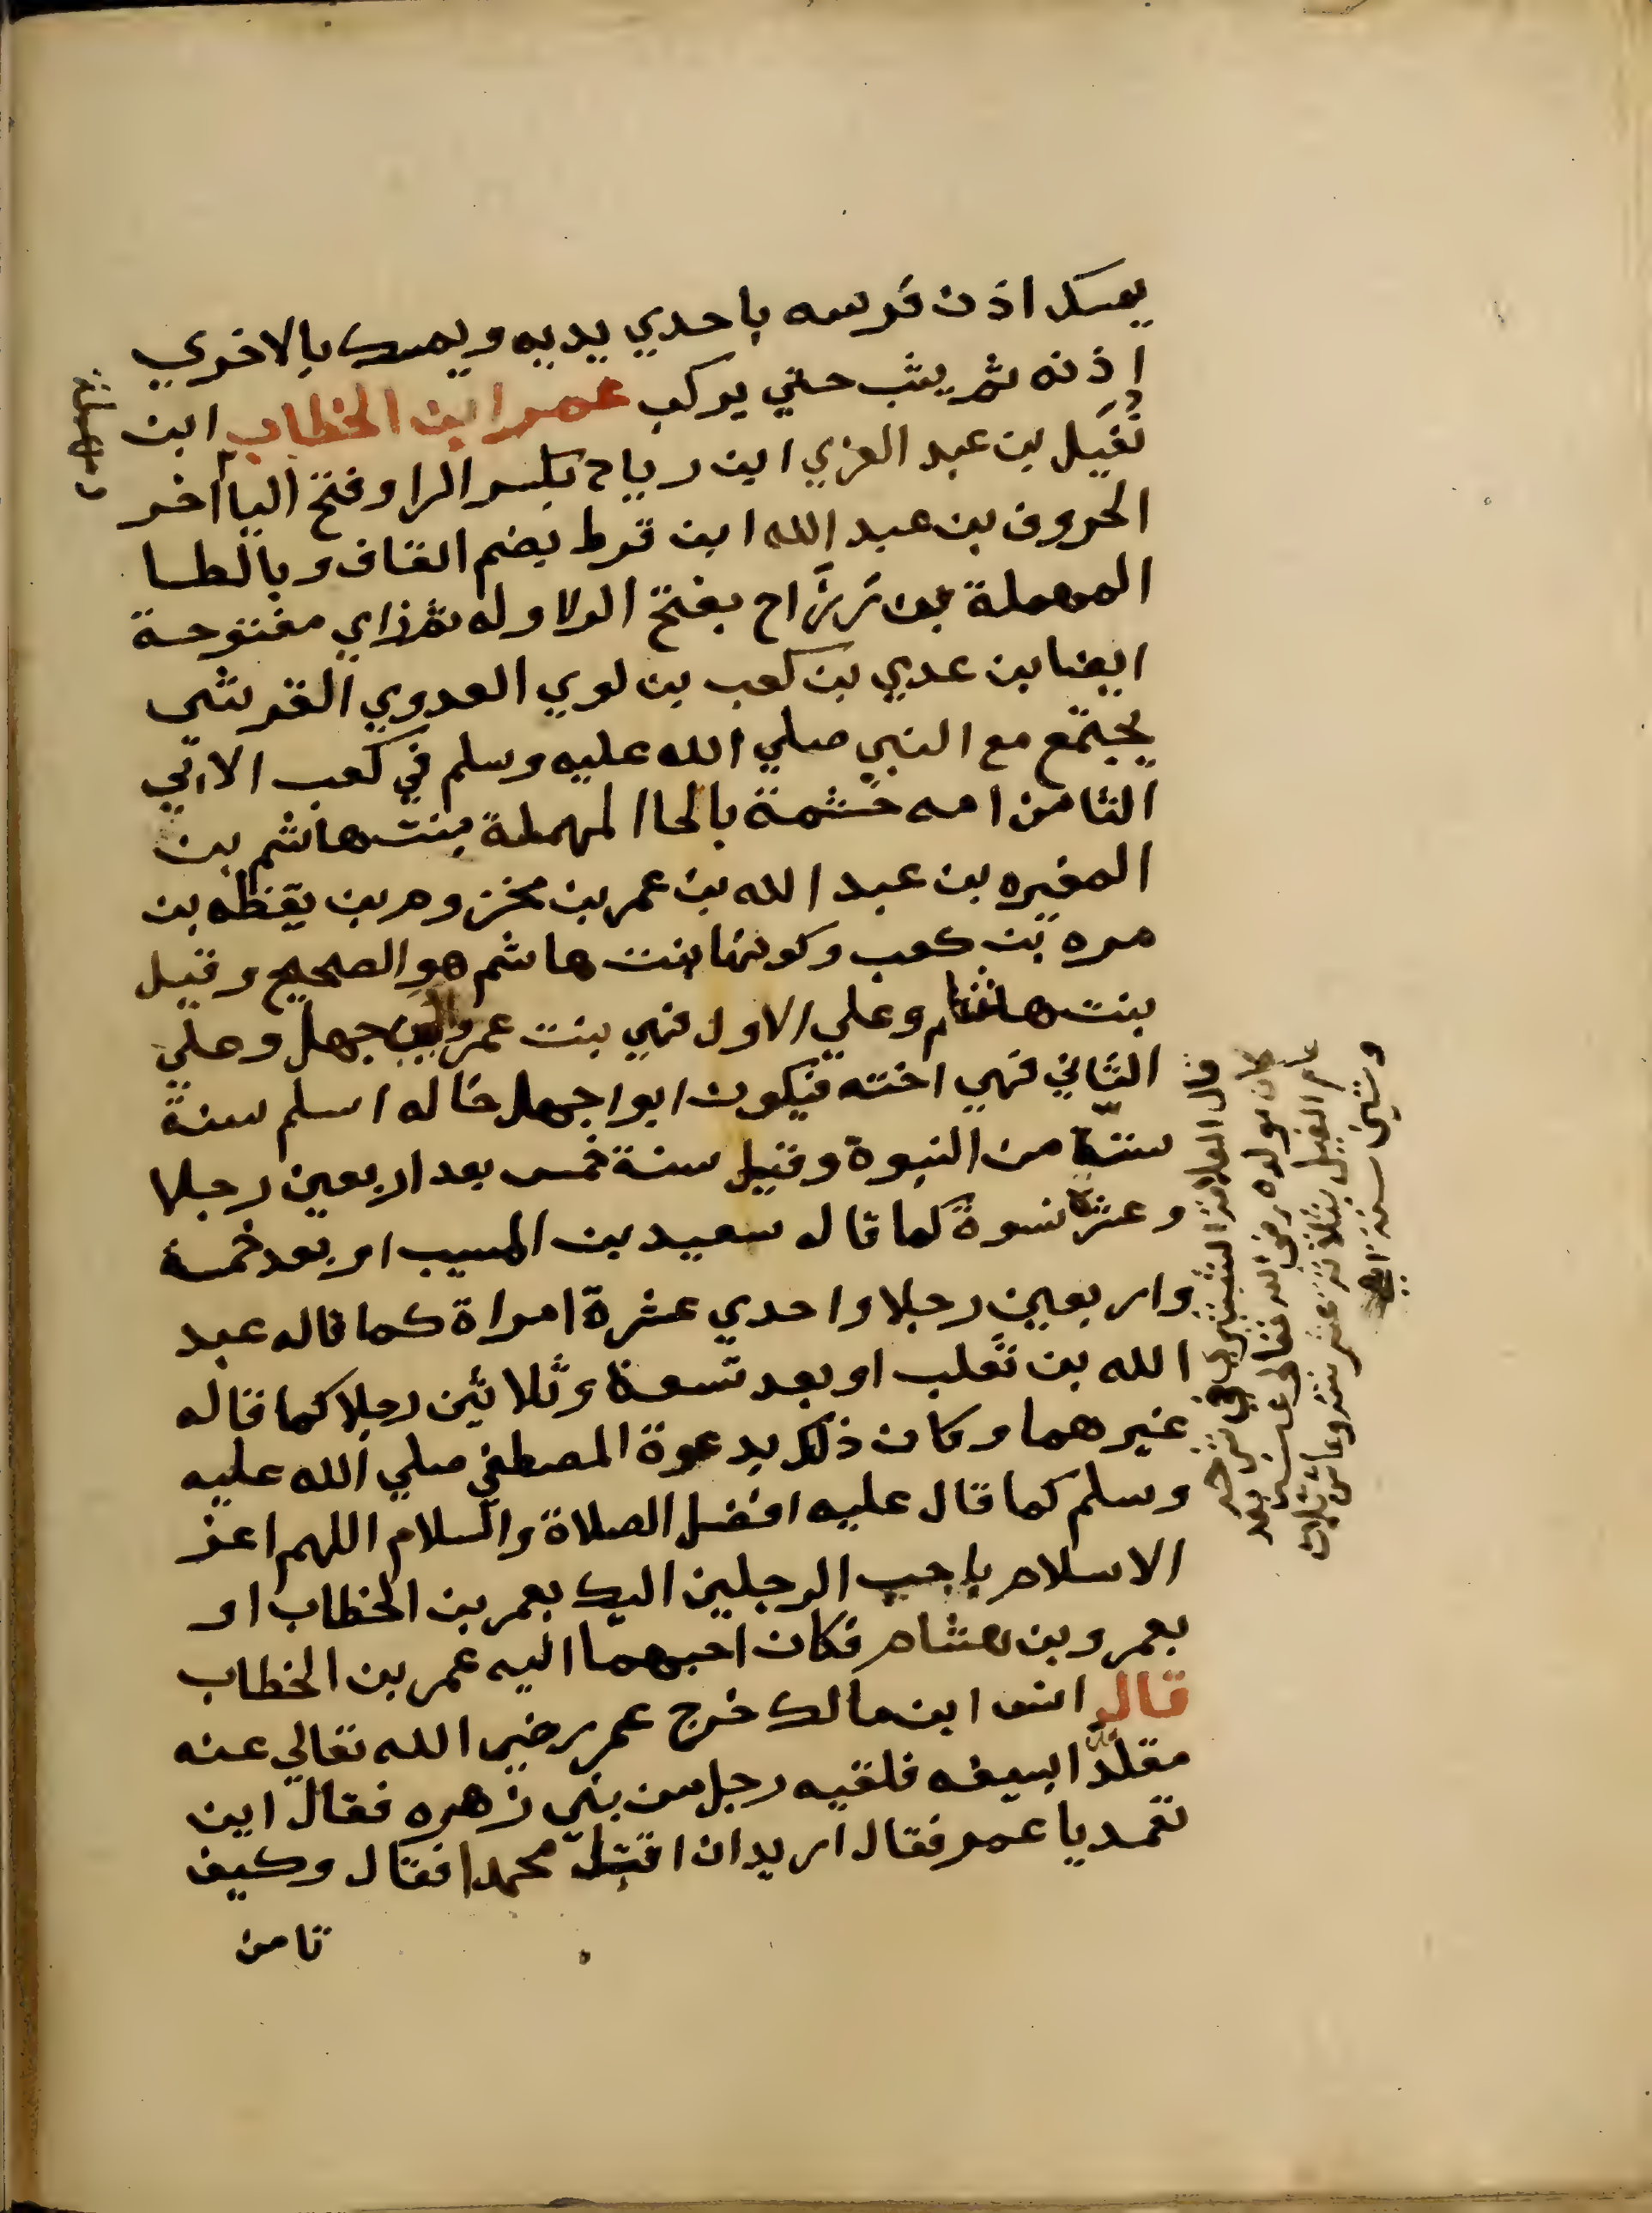 يمسك اذن فرسه باحدي يديه ويمسك بالاخري
إذنه ثم يثب حتي يركب عمر ابن الخطاب ابن
نُفَيل بن عبد العزي ابن رياح بكسر الرا وفتح اليا آخر
الحروف بن عبد الله ابن قرط بضم القاف وبالطا
المهملة بن رَزَاح بفتح الراء اوله ثم زاي مفتوحة
ايضا بن عدي بن كعب بن لوي العدوي القرشي
يجتمع مع النبي صلي الله عليه وسلم في كعب الاتي
الثامن امه حنتمة بالحا المهملة بنت هاشم بن
المغيره بن عبد الله بن عمر بن مخزوم بن يقظه بن
مره بن كعب وكونها بنت هاشم هو الصحيح وقيل
بنت هشام وعلي الاول فهي بنت عم ابي جهل وعلي
الثاني فهي اخته فيكون ابوا جهل خاله اسلم سنة
ستة من النبوة وقيل سنة خمس بعد اربعين رجلا
وعشر نسوة كما قاله سعيد بن المسيب او بعد خمسة
واربعين رجلا واحدي عشرة امراة كما قاله عبد
الله بن ثعلب او بعد تسعة وثلاثين رجلا كما قاله
غيرهما وكان ذلك بدعوة المصطفي صلي الله عليه
وسلم كما قال عليه افضل الصلاة والسلام اللهم اعز
الاسلام باحب الرجلين اليك بعمر بن الخطاب او
بعمرو بن هشام فكان احبهما اليه عمر بن الخطاب
قال انس ابن مالك خرج عمر رضي الله تعالي عنه
مقلدًا بسيفه فلقيه رجل من بني زهره فقال اين
تعمد يا عمر فقال اريد ان اقتل محمدا فقال وكيف
تامن
قال العلامة الشبشيري في شرحه
كان مولده رضي الله تعالى عنه بعد
عام الفيل بثلاثة عشر سنة وعاش ثلاث
وستين سنة